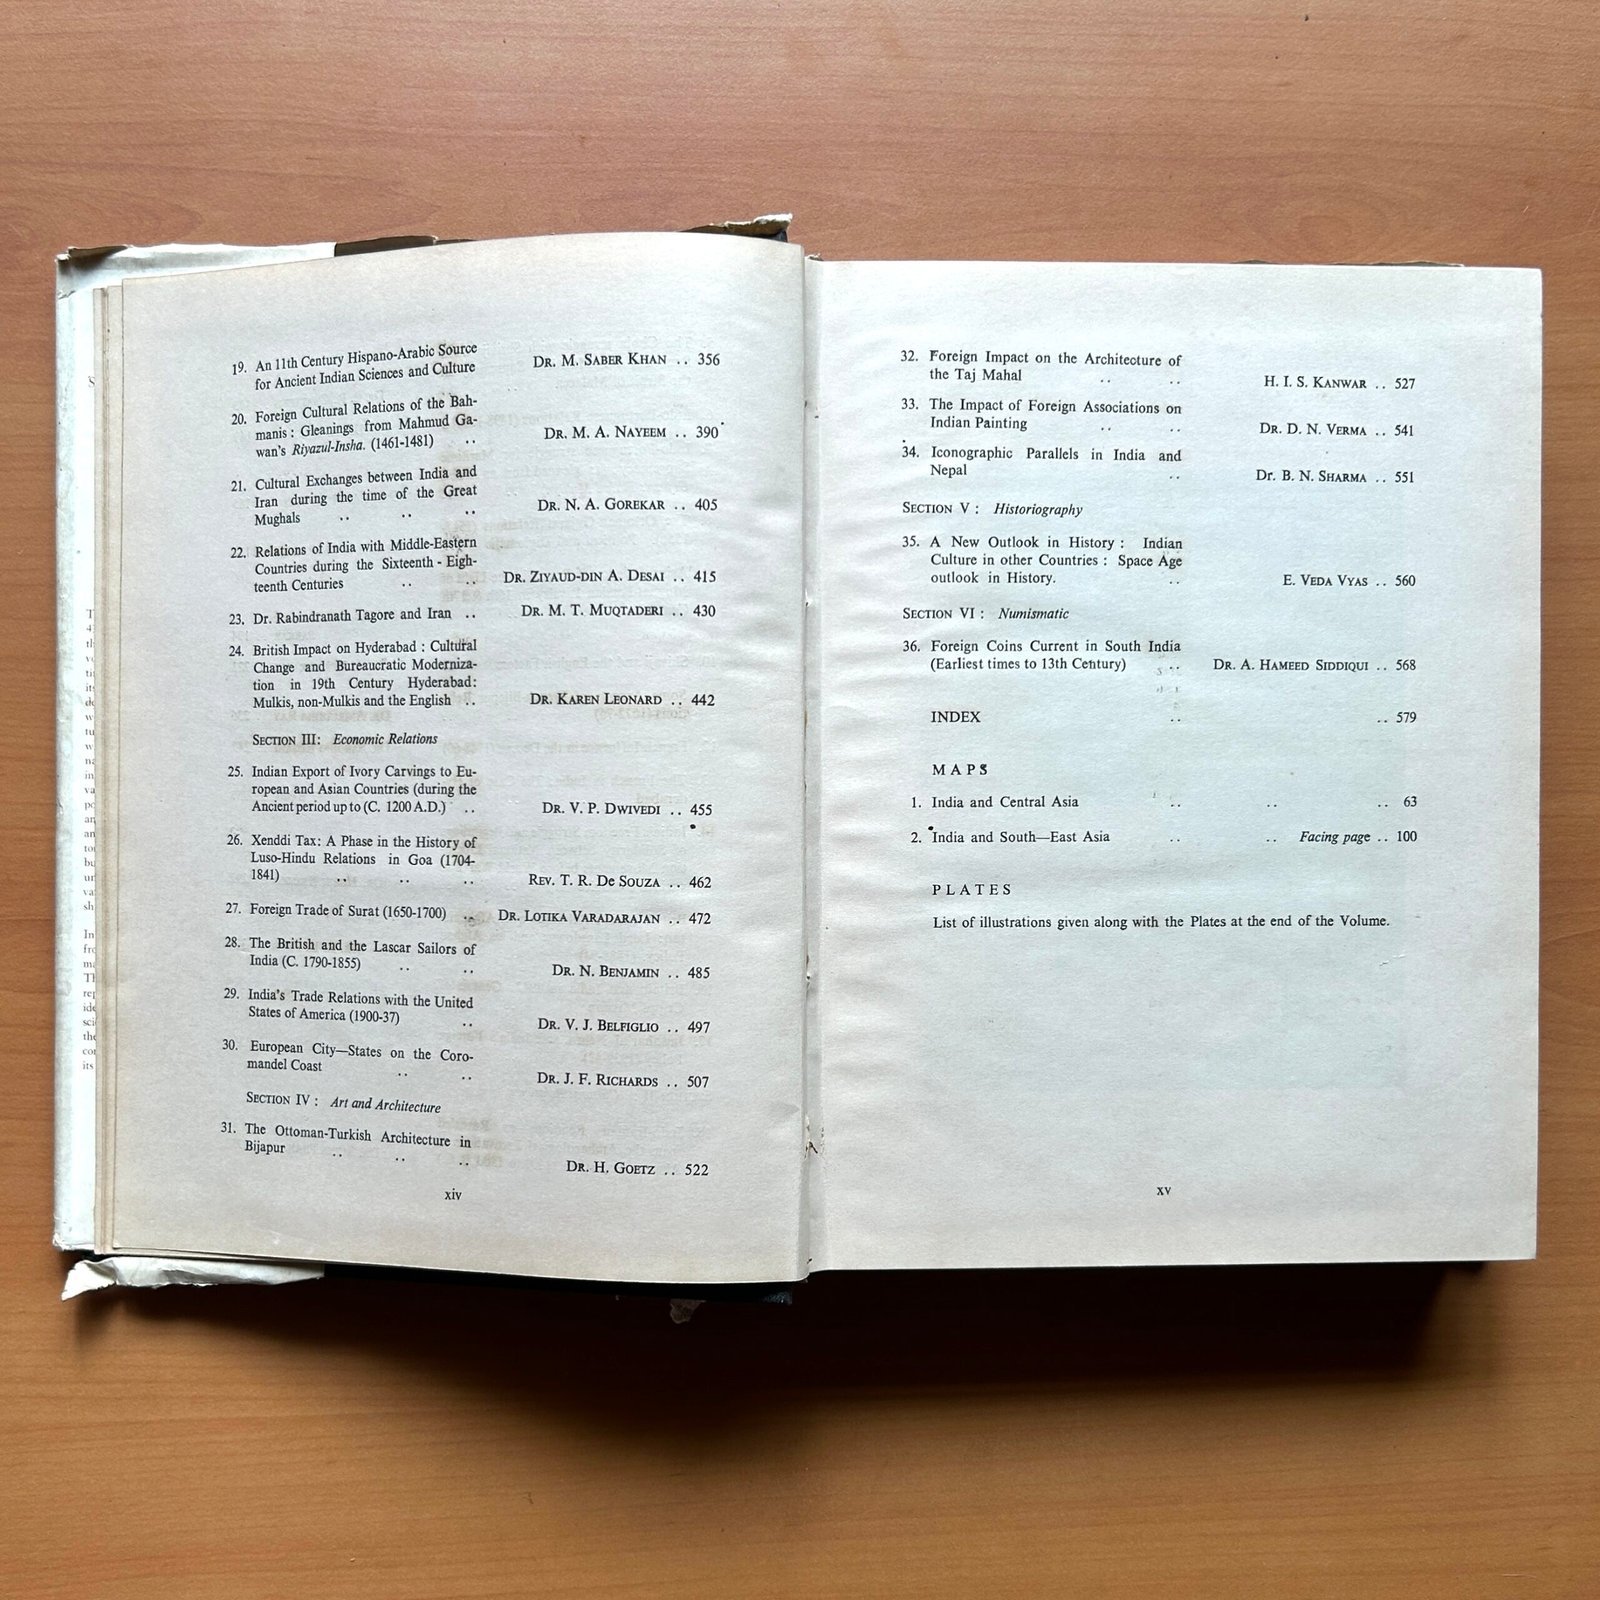 19. An 11th Century Hispano-Arabic Source
for Ancient Indian Sciences and Culture DR. M. SABER KHAN .. 356
20. Foreign Cultural Relations of the Bah-
manis : Gleanings from Mahmud Ga-
wan's Riyazul-Insha. (1461-1481) .. DR. M. A. NAYEEM .. 390
21. Cultural Exchanges between India and
Iran during the time of the Great
Mughals .. .. .. DR. N. A. GOREKAR .. 405
22. Relations of India with Middle-Eastern
Countries during the Sixteenth - Eigh-
teenth Centuries .. .. DR. ZIYAUD-DIN A. DESAI .. 415
23. Dr. Rabindranath Tagore and Iran .. DR. M. T. MUQTADERI .. 430
24. British Impact on Hyderabad : Cultural
Change and Bureaucratic Moderniza-
tion in 19th Century Hyderabad:
Mulkis, non-Mulkis and the English .. DR. KAREN LEONARD .. 442
SECTION III: Economic Relations
25. Indian Export of Ivory Carvings to Eu-
ropean and Asian Countries (during the
Ancient period up to (C. 1200 A.D.) .. DR. V. P. DWIVEDI .. 455
26. Xenddi Tax: A Phase in the History of
Luso-Hindu Relations in Goa (1704-
1841) .. .. .. REV. T. R. De SOUZA .. 462
27. Foreign Trade of Surat (1650-1700) .. DR. LOTIKA VARADARAJAN .. 472
28. The British and the Lascar Sailors of
India (C. 1790-1855) .. .. DR. N. BENJAMIN .. 485
29. India's Trade Relations with the United
States of America (1900-37) .. DR. V. J. BELFIGLIO .. 497
30. European City—States on the Coro-
mandel Coast .. .. DR. J. F. RICHARDS .. 507
SECTION IV : Art and Architecture
31. The Ottoman-Turkish Architecture in
Bijapur .. .. .. DR. H. GOETZ .. 522
xiv
32. Foreign Impact on the Architecture of
the Taj Mahal .. .. H. I. S. KANWAR .. 527
33. The Impact of Foreign Associations on
Indian Painting .. .. DR. D. N. VERMA .. 541
34. Iconographic Parallels in India and
Nepal .. Dr. B. N. SHARMA .. 551
SECTION V : Historiography
35. A New Outlook in History : Indian
Culture in other Countries : Space Age
outlook in History. .. E. VEDA VYAS .. 560
SECTION VI : Numismatic
36. Foreign Coins Current in South India
(Earliest times to 13th Century) .. DR. A. HAMEED SIDDIQUI .. 568
INDEX .. .. 579
MAPS
1. India and Central Asia .. .. .. 63
2. India and South—East Asia .. .. Facing page .. 100
PLATES
List of illustrations given along with the Plates at the end of the Volume.
xv